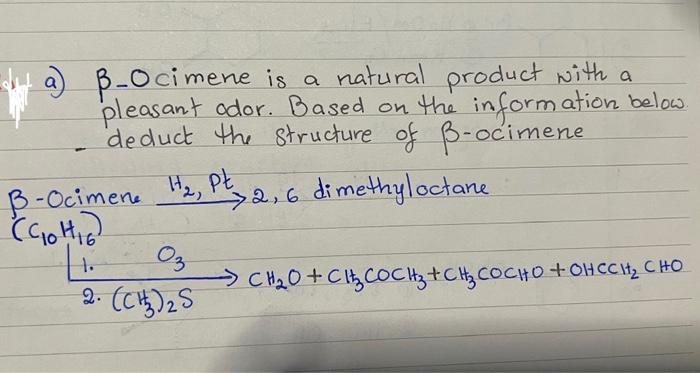 a) β-Ocimene is a natural product with a
pleasant odor. Based on the information below.
- deduct the structure of β-ocimene
β-Ocimene H₂, Pt → 2, 6 dimethyloctane
(C₁₀H₁₆)
1. O₃
2. (CH₃)₂S → CH₂O + CH₃COCH₃ + CH₃COCHO + OHCCH₂CHO